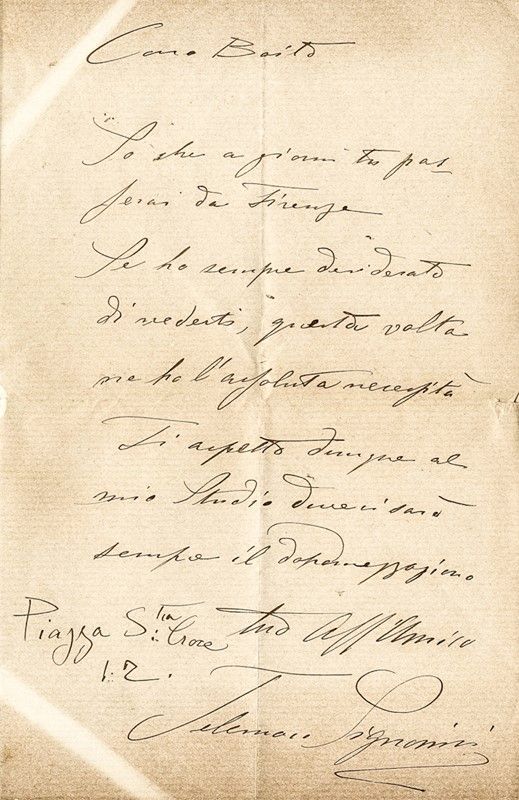 Caro Boito
So che a giorni tu pas-
serai da Firenze
Se ho sempre desiderato
di vederti, questa volta
ne ho l'assoluta necessità
Ti aspetto dunque al
mio Studio dove ci sarò
sempre il dopomezzogiorno
tuo Aff Amico
Piazza S.ta Croce
1:2.
Telemaco Signorini